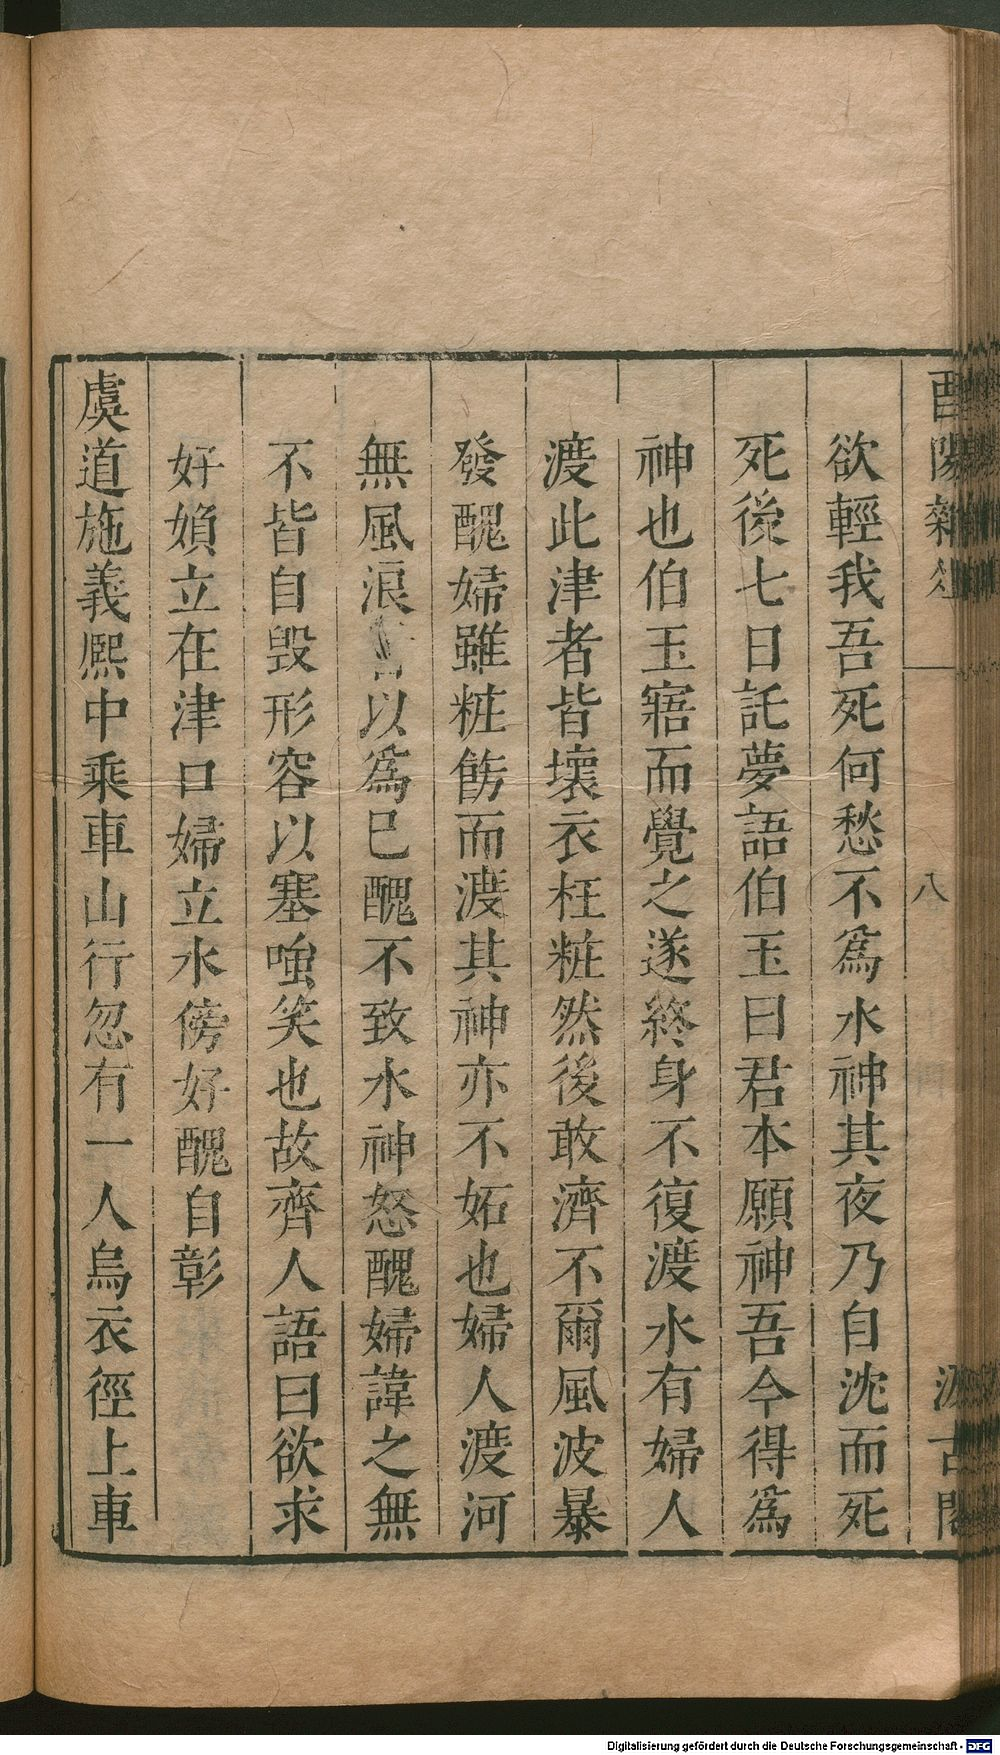 酉陽雜俎
八
汲古閣
欲輕我吾死何愁不爲水神其夜乃自沈而死
死後七日託夢語伯玉曰君本願神吾今得爲
神也伯玉寤而覺之遂終身不復渡水有婦人
渡此津者皆壞衣枉粧然後敢濟不爾風波暴
發醜婦雖粧飭而渡其神亦不妬也婦人渡河
無風浪者以爲已醜不致水神怒醜婦諱之無
不皆自毁形容以塞嗤笑也故齊人語曰欲求
好婦立在津口婦立水傍好醜自彰
虞道施義熙中乘車山行忽有一人烏衣徑上車
Digitalisierung gefördert durch die Deutsche Forschungsgemeinschaft - DFG